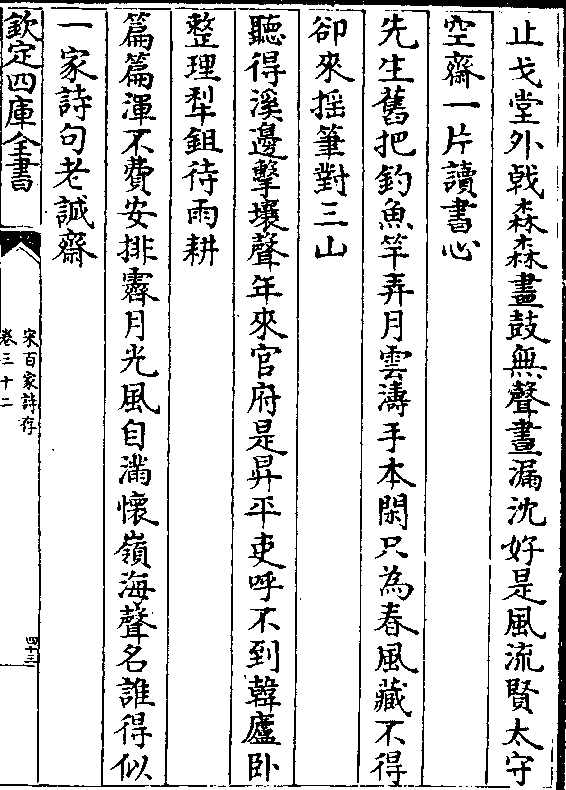 止戈堂外㦸森森畫鼓無聲晝漏沈好是風流賢太守
空齋一片讀書心
先生舊把釣魚竿弄月雲濤手本閑只為春風藏不得
卻來揺筆對三山
聽得溪邊擊壤聲年來官府是昇平吏呼不到韓廬卧
整理犁鉏待雨耕
篇篇渾不費安排霽月光風自滿懷嶺海聲名誰得似
一家詩句老誠齋
欽定四庫全書
宋百家詩存
卷三十二
四十三